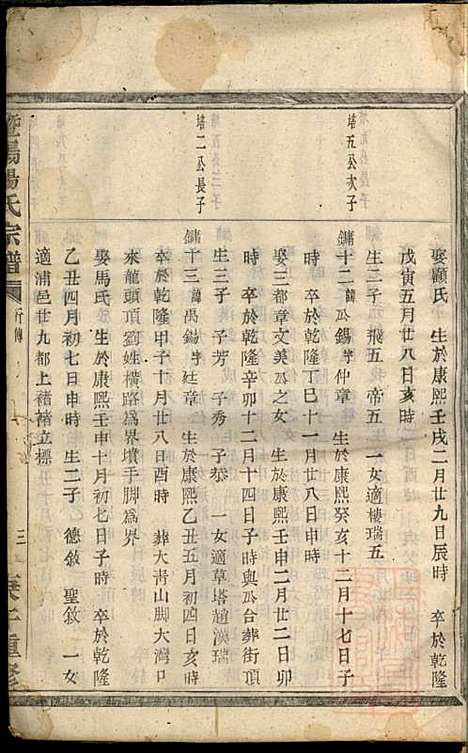 娶顧氏　生於康熙壬戌二月廿九日辰時　卒於乾隆
戊寅五月廿八日亥時
生二子　飛五　帝五　生一女適樓瑞五
塔五公次子
鏞十二諱公錫字仲章　生於康熙癸亥十二月十七日子
時　卒於乾隆丁巳十一月廿八日申時
娶三都章文美公之女　生於康熙壬申二月廿二日卯
時　卒於乾隆辛卯十二月十四日子時與公合葬街頂
生三子　子芳　子秀　子恭　一女適草塔趙漢瑞
塔二公長子
鏞十三諱禹錫字廷章　生於康熙乙丑五月初四日亥時
卒於乾隆甲子十月廿八日酉時　葬大青山脚大灣口
來龍頭頂劉姓橫路為界墳手脚為界
娶馬氏　生於康熙壬申十月初七日子時　卒於乾隆
乙丑四月初七日申時　生二子　德敘　聖敘　一女
適浦邑廿九都上褚褚立標
暨陽楊氏宗譜　行傳　三